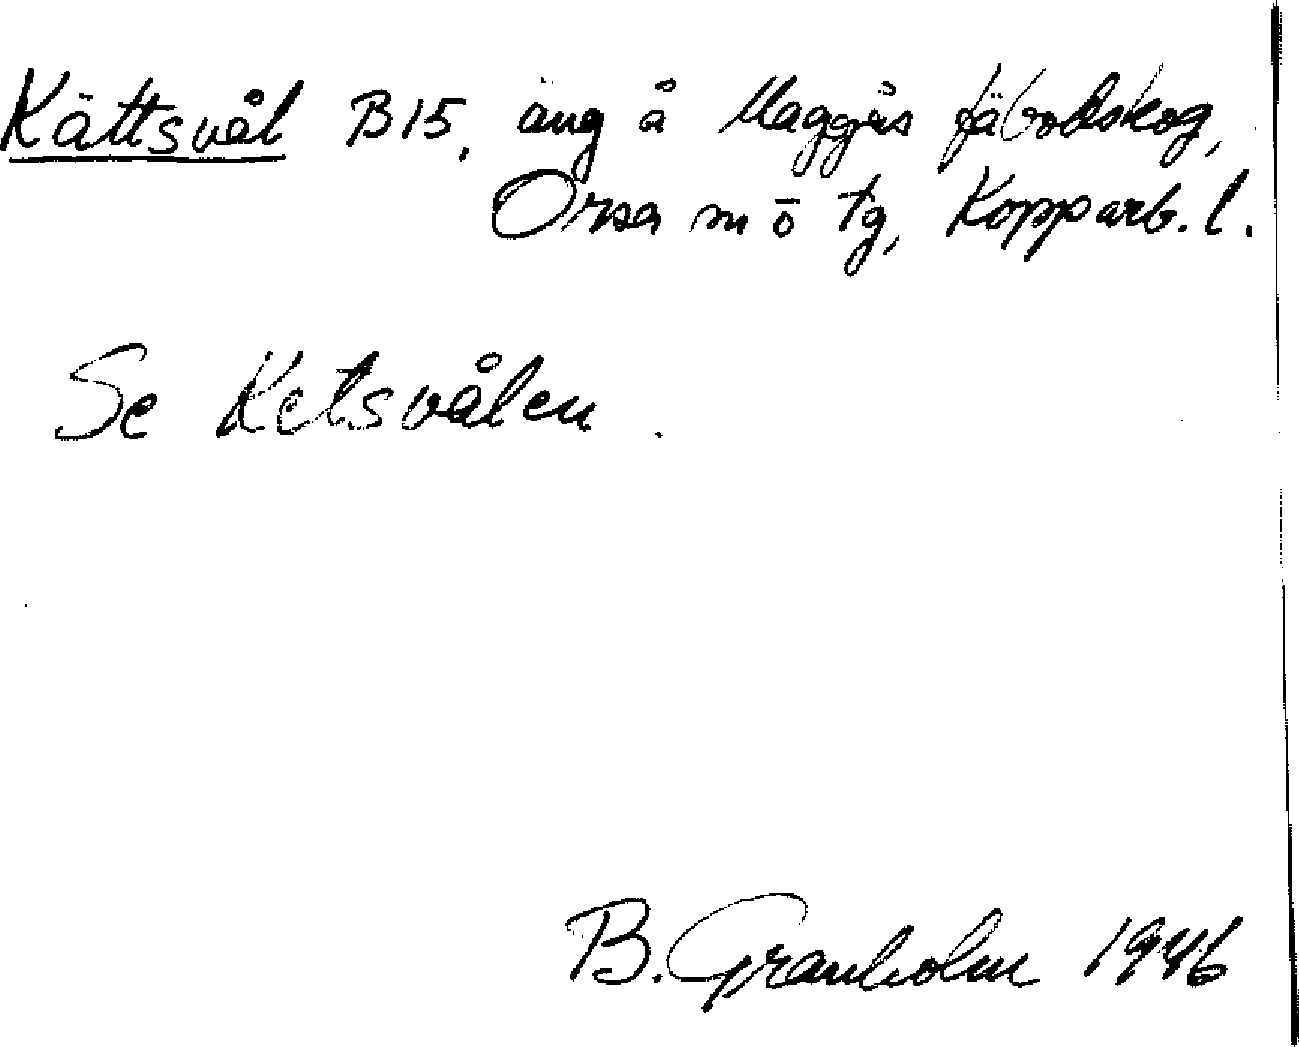 Kättsvål B15, äng å Maggås fäbodskog,
Orsa sn o tg, Kopparb. l.
Se Ketsvålen.
B. Granholm 1946